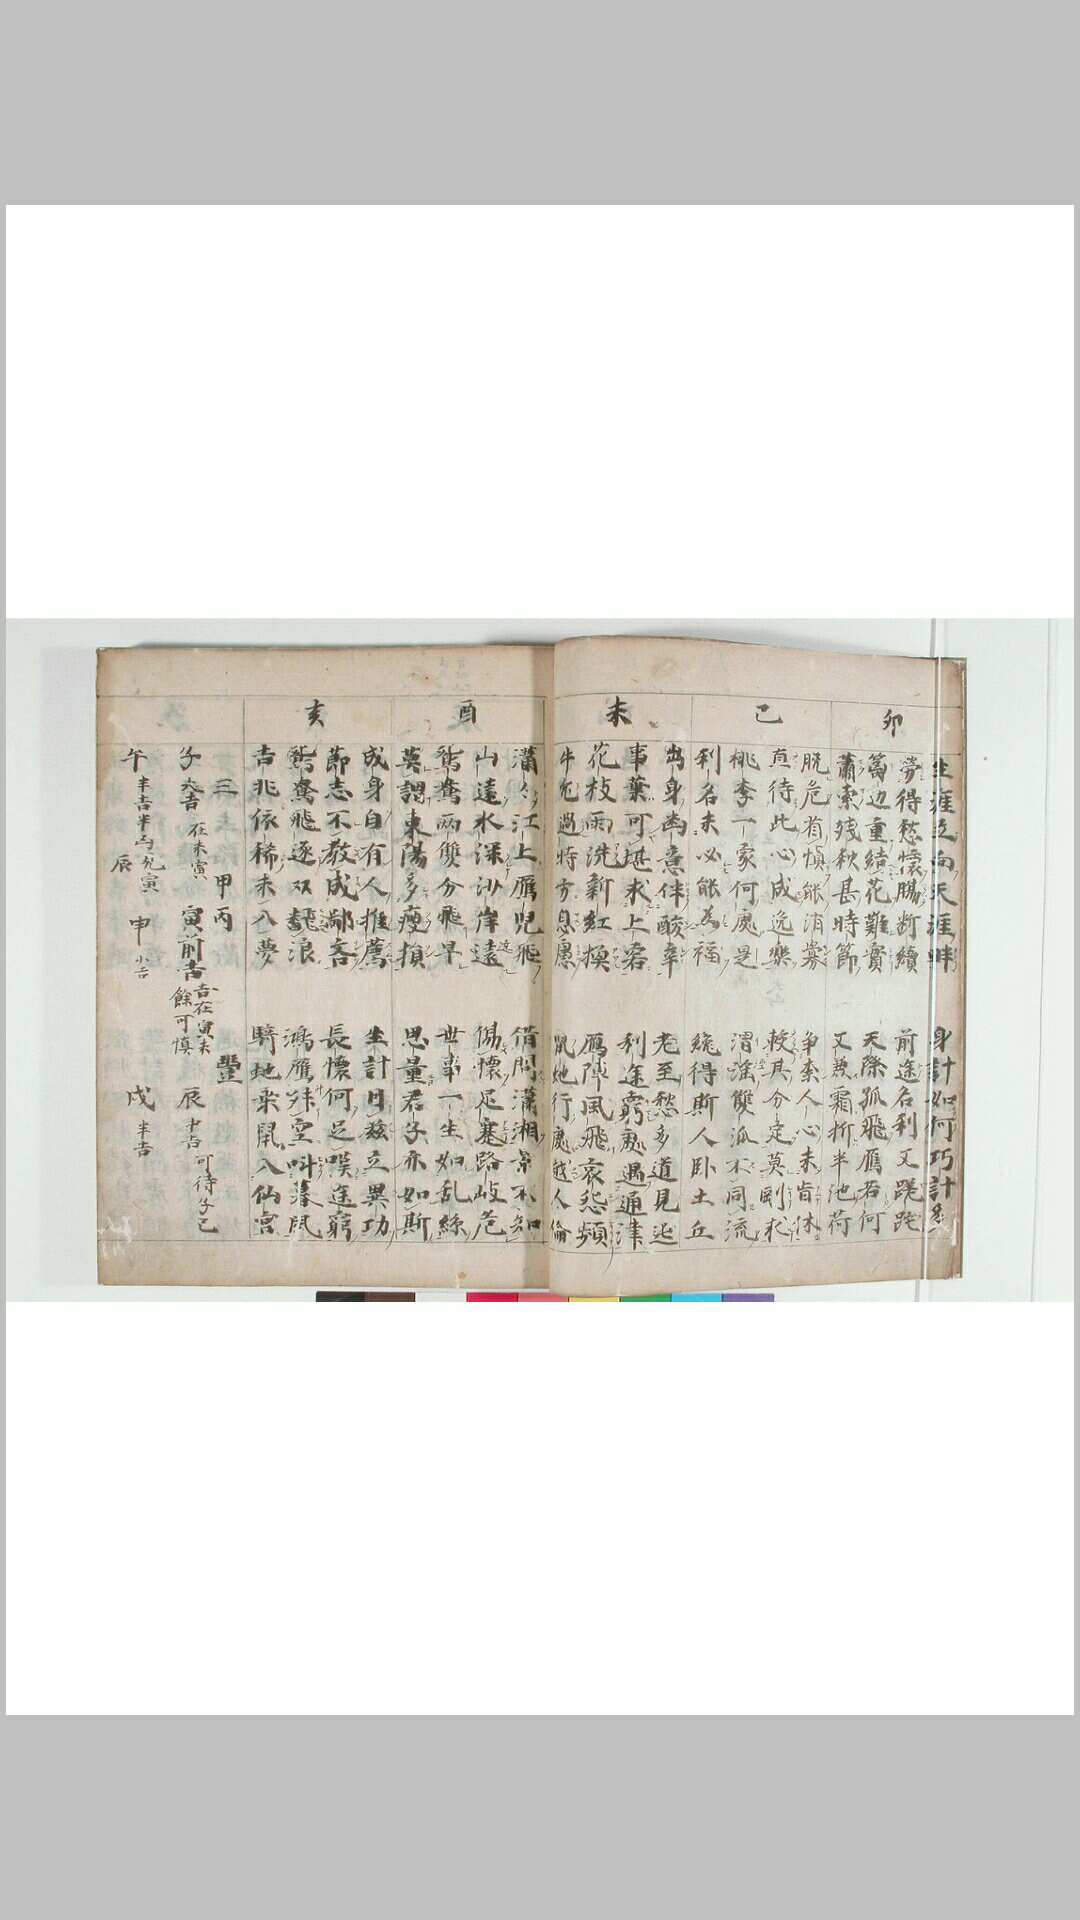 卯
生涯立向天涯畔 身計如何巧計
労得愁懐腸断續 前途名利又蹉跎
籬边重結花難實 天際孤飛雁若何
蕭索残秋甚時節 又兼霜折半池荷
巳
脱危有慎能消 争柰人心未肯休
直待此心成逸樂 較其分定莫剛求
桃李一家何處是 渭淫雙派不同流
利名未必能為福 纔得斯人卧土丘
未
出身幽意伴酸辛 老至愁多道見迍
事業可堪求上 利途窮處遇通津
花枝雨洗新紅換 雁陣風飛哀怨頻
牛兎遇時方息慮 鼠地行處越人倫
酉
瀟々江上雁児飛 借問瀟湘景不知
山遠水深沙岸遠 傷懐足蹇路岐危
鴛鴦兩雙分飛早 世事一生如乱絲
莫謂東陽多瘦損 思量君子亦如斯
亥
成身自有人推薦 生計日茲立異功
節志不教成鄙吝 長懐何足嘆途窮
鴛鴦飛逐双飜浪 鴻雁 空叫暮風
吉兆依稀未入夢 騎地乘鼠入仙宮
三 甲丙 豐
子 大吉 在未寅 寅 前吉 吉在寅未 餘可慎 辰 中吉 可待子巳
午 半吉半凶 寅辰 申 小吉 戌 半吉